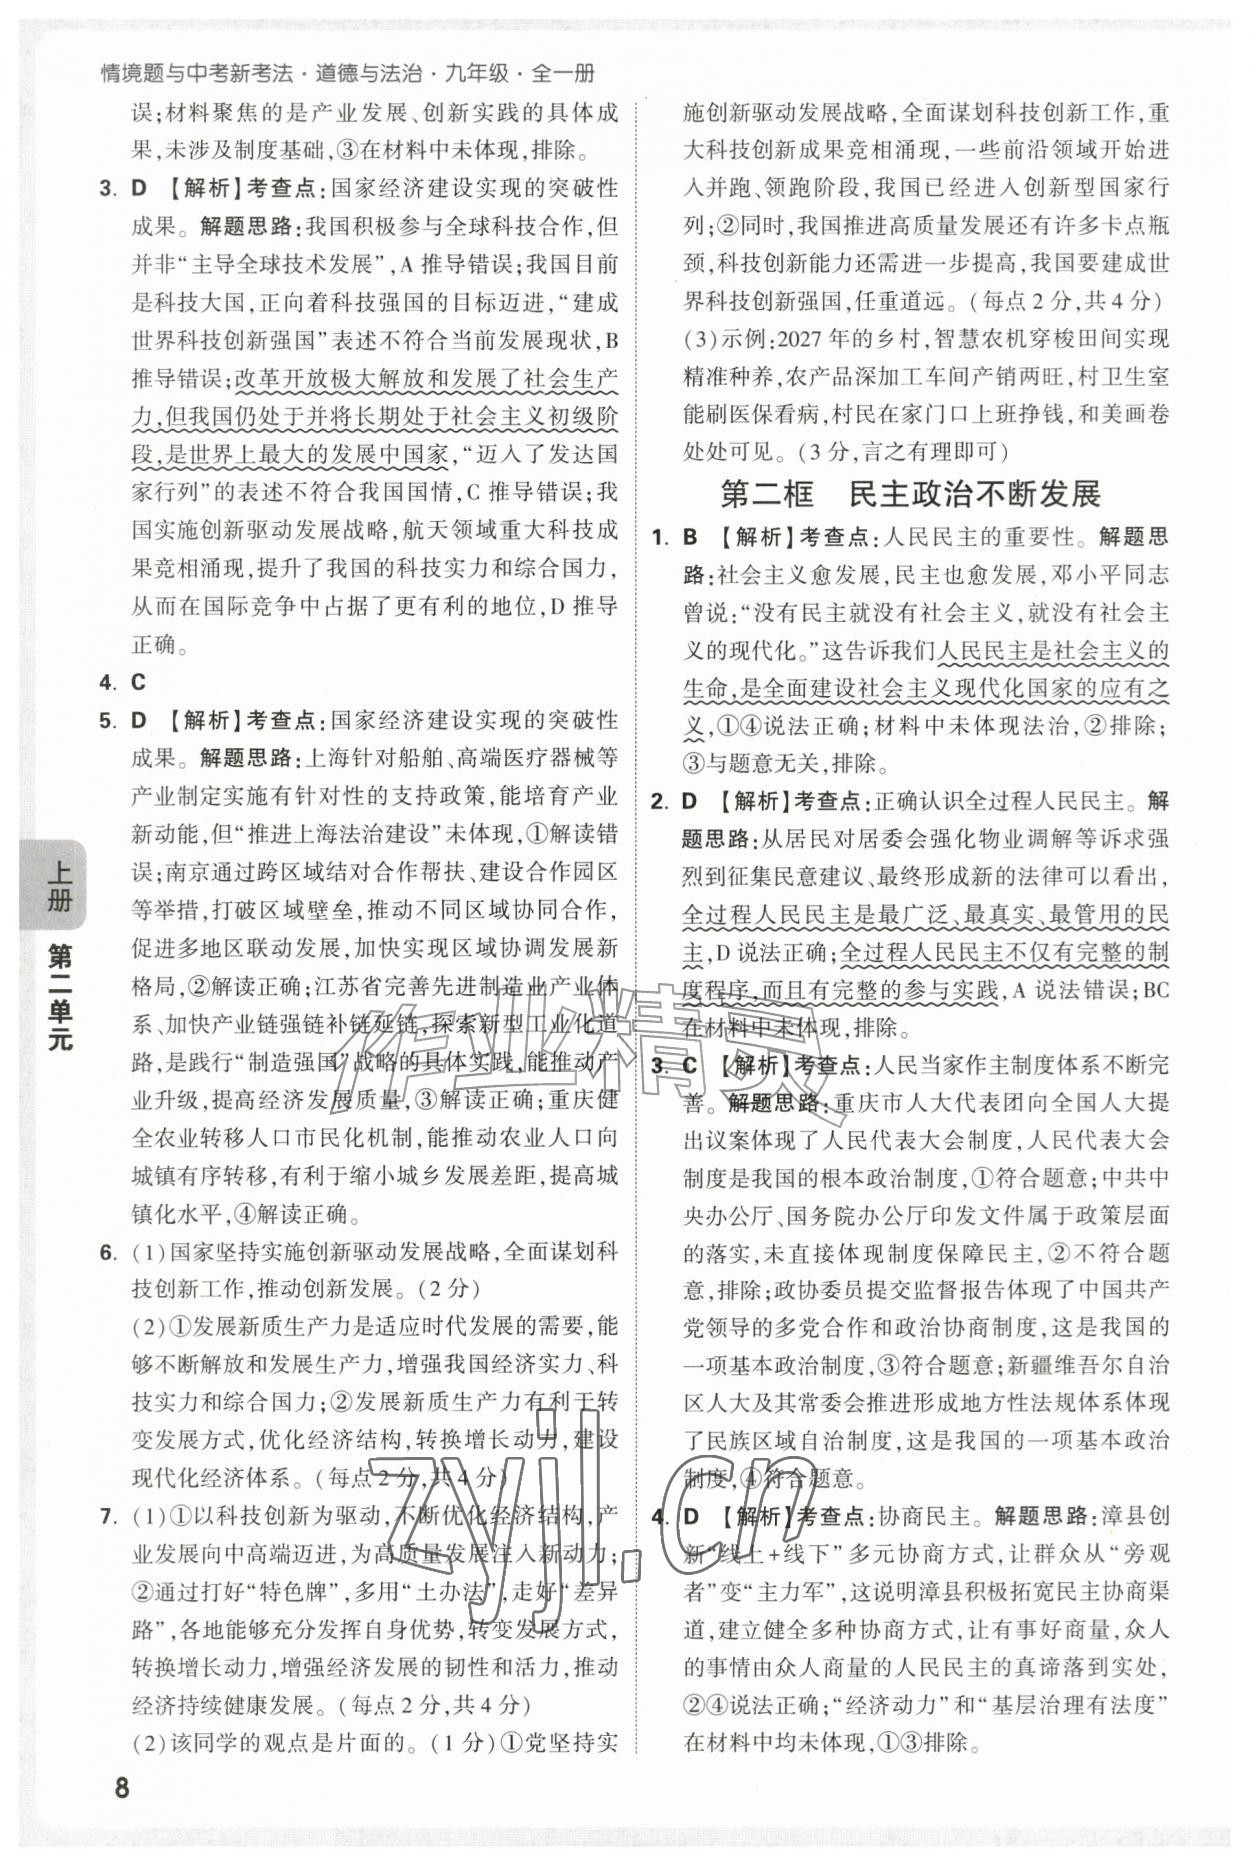 情境题与中考新考法·道德与法治·九年级·全一册
误;材料聚焦的是产业发展、创新实践的具体成
果,未涉及制度基础,③在材料中未体现,排除。
3. D 【解析】考查点:国家经济建设实现的突破性
成果。解题思路:我国积极参与全球科技合作,但
并非“主导全球技术发展”,A 推导错误;我国目前
是科技大国,正向着科技强国的目标迈进,“建成
世界科技创新强国”表述不符合当前发展现状,B
推导错误;改革开放极大解放和发展了社会生产
力,但我国仍处于并将长期处于社会主义初级阶
段,是世界上最大的发展中国家,“迈入了发达国
家行列”的表述不符合我国国情,C 推导错误;我
国实施创新驱动发展战略,航天领域重大科技成
果竞相涌现,提升了我国的科技实力和综合国力,
从而在国际竞争中占据了更有利的地位,D 推导
正确。
4. C
5. D 【解析】考查点:国家经济建设实现的突破性
成果。解题思路:上海针对船舶、高端医疗器械等
产业制定实施有针对性的支持政策,能培育产业
新动能,但“推进上海法治建设”未体现,①解读错
误;南京通过跨区域结对合作帮扶、建设合作园区
等举措,打破区域壁垒,推动不同区域协同合作,
促进多地区联动发展,加快实现区域协调发展新
格局,②解读正确;江苏省完善先进制造业产业体
系、加快产业链强链补链延链,探索新型工业化道
路,是践行“制造强国”战略的具体实践,能推动产
业升级,提高经济发展质量,③解读正确;重庆健
全农业转移人口市民化机制,能推动农业人口向
城镇有序转移,有利于缩小城乡发展差距,提高城
镇化水平,④解读正确。
6. (1)国家坚持实施创新驱动发展战略,全面谋划科
技创新工作,推动创新发展。(2 分)
(2)①发展新质生产力是适应时代发展的需要,能
够不断解放和发展生产力,增强我国经济实力、科
技实力和综合国力;②发展新质生产力有利于转
变发展方式,优化经济结构,转换增长动力,建设
现代化经济体系。(每点 2 分,共 4 分)
7. (1)①以科技创新为驱动,不断优化经济结构,产
业发展向中高端迈进,为高质量发展注入新动力;
②通过打好“特色牌”,多用“土办法”,走好“差异
路”,各地能够充分发挥自身优势,转变发展方式,
转换增长动力,增强经济发展的韧性和活力,推动
经济持续健康发展。(每点 2 分,共 4 分)
(2)该同学的观点是片面的。(1 分)①党坚持实
施创新驱动发展战略,全面谋划科技创新工作,重
大科技创新成果竞相涌现,一些前沿领域开始进
入并跑、领跑阶段,我国已经进入创新型国家行
列;②同时,我国推进高质量发展还有许多卡点瓶
颈,科技创新能力还需进一步提高,我国要建成世
界科技创新强国,任重道远。(每点 2 分,共 4 分)
(3)示例:2027 年的乡村,智慧农机穿梭田间实现
精准种养,农产品深加工车间产销两旺,村卫生室
能刷医保看病,村民在家门口上班挣钱,和美画卷
处处可见。(3 分,言之有理即可)
第二框 民主政治不断发展
1. B 【解析】考查点:人民民主的重要性。解题思
路:社会主义愈发展,民主也愈发展,邓小平同志
曾说:“没有民主就没有社会主义,就没有社会主
义的现代化。”这告诉我们人民民主是社会主义的
生命,是全面建设社会主义现代化国家的应有之
义,①④说法正确;材料中未体现法治,②排除;
③与题意无关,排除。
2. D 【解析】考查点:正确认识全过程人民民主。解
题思路:从居民对居委会强化物业调解等诉求强
烈到征集民意建议、最终形成新的法律可以看出,
全过程人民民主是最广泛、最真实、最管用的民
主,D 说法正确;全过程人民民主不仅有完整的制
度程序,而且有完整的参与实践,A 说法错误;BC
在材料中未体现,排除。
3. C 【解析】考查点:人民当家作主制度体系不断完
善。解题思路:重庆市人大代表团向全国人大提
出议案体现了人民代表大会制度,人民代表大会
制度是我国的根本政治制度,①符合题意;中共中
央办公厅、国务院办公厅印发文件属于政策层面
的落实,未直接体现制度保障民主,②不符合题
意,排除;政协委员提交监督报告体现了中国共产
党领导的多党合作和政治协商制度,这是我国的
一项基本政治制度,③符合题意;新疆维吾尔自治
区人大及其常委会推进形成地方性法规体系体现
了民族区域自治制度,这是我国的一项基本政治
制度,④符合题意。
4. D 【解析】考查点:协商民主。解题思路:漳县创
新“线上+线下”多元协商方式,让群众从“旁观
者”变“主力军”,这说明漳县积极拓宽民主协商渠
道,建立健全多种协商方式,让有事好商量,众人
的事情由众人商量的人民民主的真谛落到实处,
②④说法正确;“经济动力”和“基层治理有法度”
在材料中均未体现,①③排除。
上册
第二单元
8
作业精灵
zyjl.cn